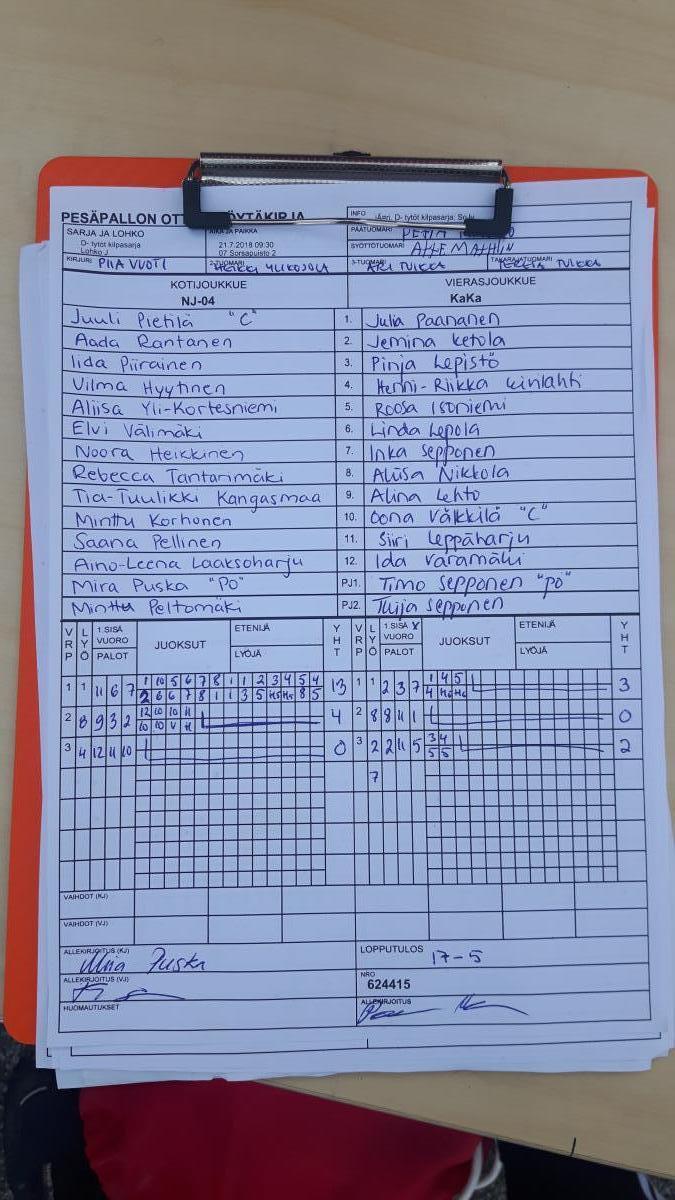 PESÄPALLON OTT ÖYTÄKIRJA
INFO Järj. D- tytöt kilpasarja:
SARJA JA LOHKO AIKA JA PAIKKA PÄÄTUOMARI PETRI
D- tytöt kilpasarja 21.7.2018 09:30 SYÖTTÖTUOMARI
Lohko J 07 Sorsapuisto 2
KIRJURI PIIA VUOTI 2-TUOMARI HEIKKI YLIKOJOLA 3-TUOMARI ARI TUIKKA TAKARAJATUOMARI TUIKKA
KOTIJOUKKUE VIERASJOUKKUE
NJ-04 KaKa
Juuli Pietilä "C" 1. Julia Paananen
Aada Rantanen 2. Jemina Ketola
Iida Piirainen 3. Pinja Lepistö
Vilma Hyytinen 4. Henni-Riikka Leinlahti
Aliisa Yli-Kortesniemi 5. Roosa Isoniemi
Elvi Välimäki 6. Linda Lepola
Noora Heikkinen 7. Inka Sepponen
Rebecca Tantarimäki 8. Aliisa Nikkola
Tia-Tuulikki Kangasmaa 9. Alina Lehto
Minttu Korhonen 10. Oona Välkkilä "C"
Saana Pellinen 11. Siiri Leppäharju
Aino-Leena Laaksoharju 12. Ida Varamäki
Mira Puska "PO" PJ1. Timo Sepponen "PO"
Minttu Peltomäki PJ2. Tuija Sepponen
VRP LYÖ 1.SISÄ VUORO PALOT JUOKSUT ETENIJÄ LYÖJÄ YHT VRP LYÖ 1.SISÄ X VUORO PALOT JUOKSUT ETENIJÄ LYÖJÄ YHT
1 1 11 6 7 1 10 5 6 7 8 1 1 2 3 4 5 4 13 1 1 2 3 7 1 4 5 3
2 6 6 7 8 1 1 3 5 H5 H5 8 5 4 H6 H6
2 8 9 3 2 12 10 10 11 4 2 8 8 4 1 0
10 10 V H
3 4 12 11 10 0 3 2 2 11 5 3 4 2
7 5 5
VAIHDOT (KJ)
VAIHDOT (VJ)
ALLEKIRJOITUS (KJ) Mira Puska LOPPUTULOS 17-5
ALLEKIRJOITUS (VJ) NRO
624415
HUOMAUTUKSET ALLEKIRJOITUS